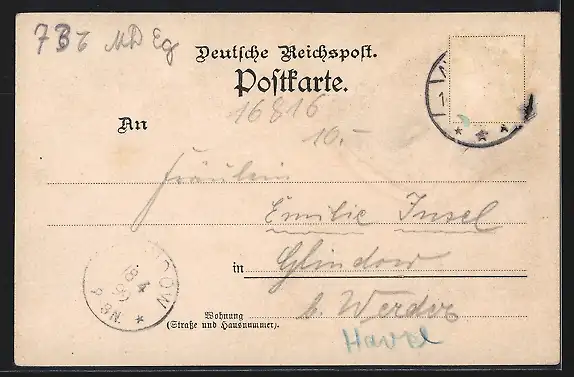 73
Deutsche Reichspost.
Postkarte.
16816
An
10.-
Fräulein
Emilie Insel
in Glindow
b. Werder
Wohnung
(Straße und Hausnummer).
Havel